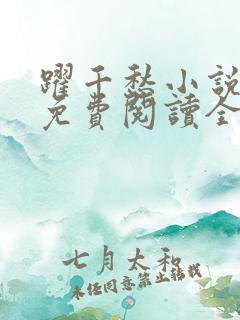 躍千愁小說
免費閱讀全
七月太和
未任同意禁止轉載